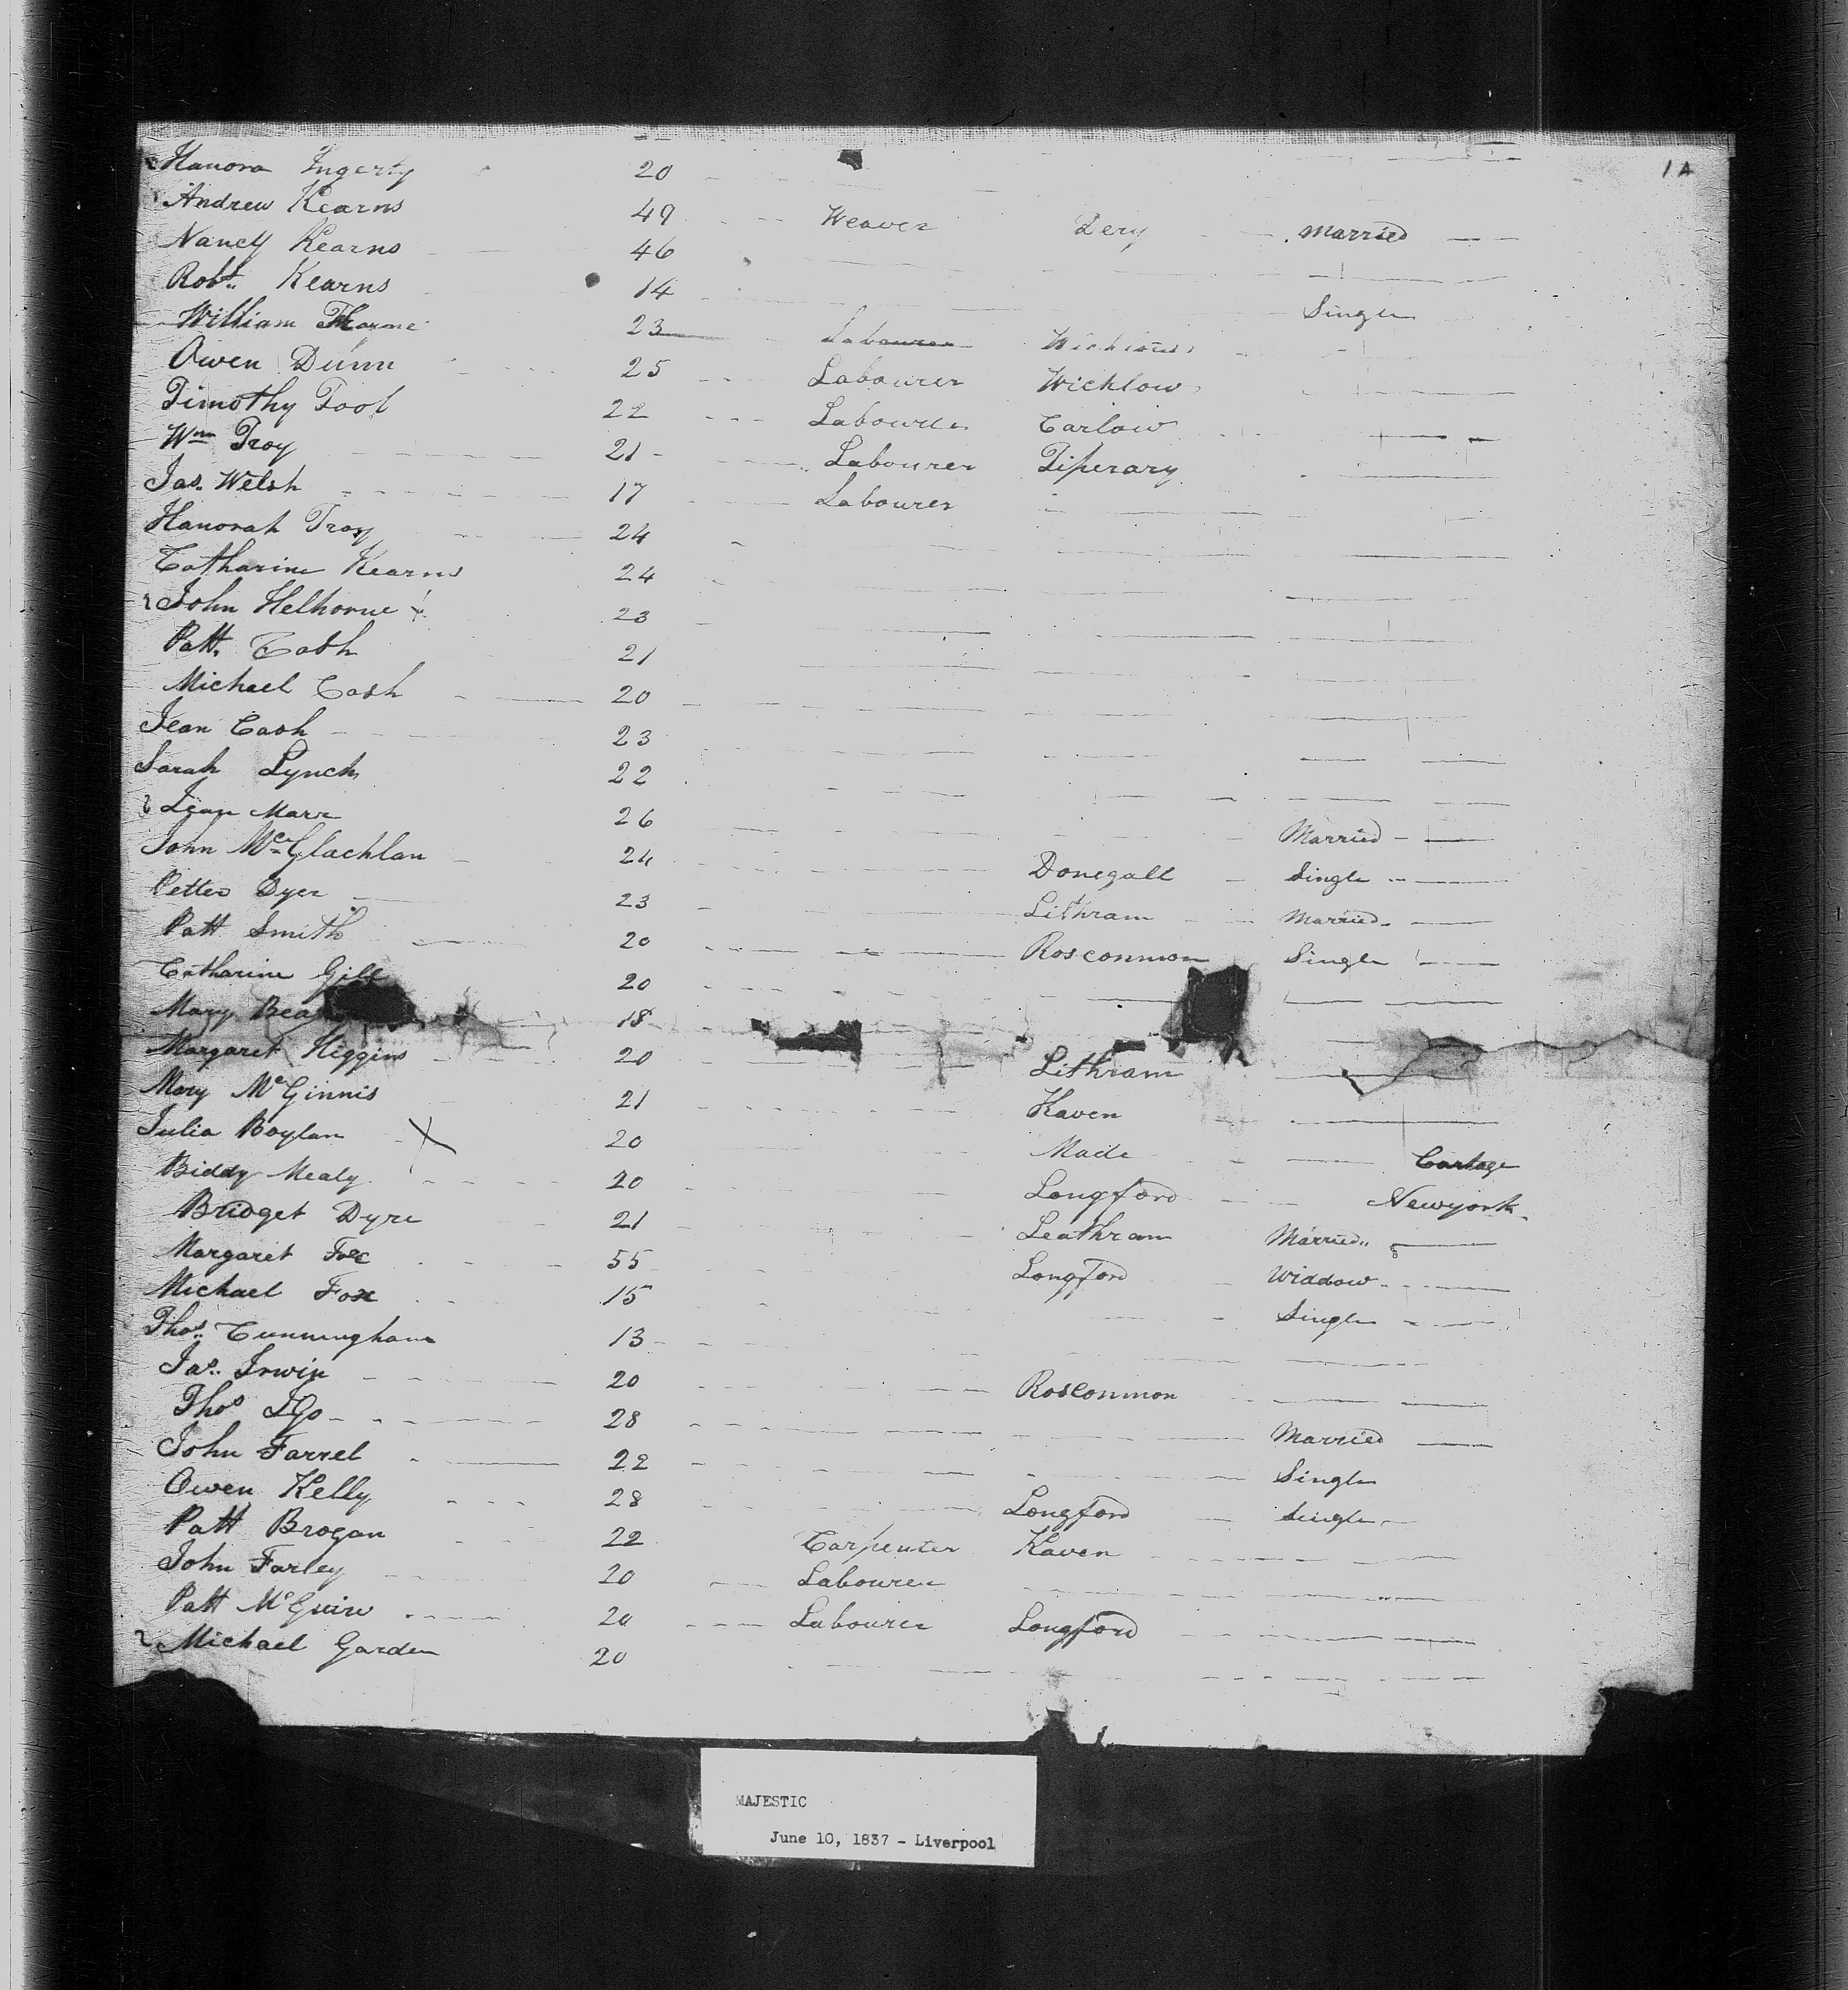 1A
Hanora Fugerty 20
Andrew Kearns 49 Weaver Dery Married
Nancy Kearns 46
Robt. Kearns 14 Single
William Thorne 23 Labourer Wicklow
Owen Dunn 25 Labourer Wicklow
Timothy Tool 22 Labourer Carlow
Wm Troy 21 Labourer Tiperary
Jas. Welsh 17 Labourer
Hanorah Troy 24
Catharine Kearns 24
John Helhorne 23
Patt. Cash 21
Michael Cash 20
Jean Cash 23
Sarah Lynch 22
Jean Marr 26 Married
John McGlachlan 24 Donegall Single
Petter Dyer 23 Lithram Married
Patt Smith 20 Rosconmon Single
Catharine Gill 20
Mary 18
Margaret Higgins 20 Lithram
Mary McGinnis 21 Kaven
Julia Boylan X 20 Made
Biddy Mealy 20 Longford Newyork
Bridget Dyre 21 Leathram Married
Margaret Fox 55 Longford Widdow
Michael Fox 15 Single
Thos. Cunningham 13
Jas. Irwin 20 Rosconmon
Thos 28 Married
John Farrel 22 Single
Owen Kelly 28 Longford Single
Patt Brogan 22 Carpenter Kaven
John Farley 20 Labourer
Patt McGuire 20 Labourer Longford
Michael Garden 20
MAJESTIC
June 10, 1837 - Liverpool